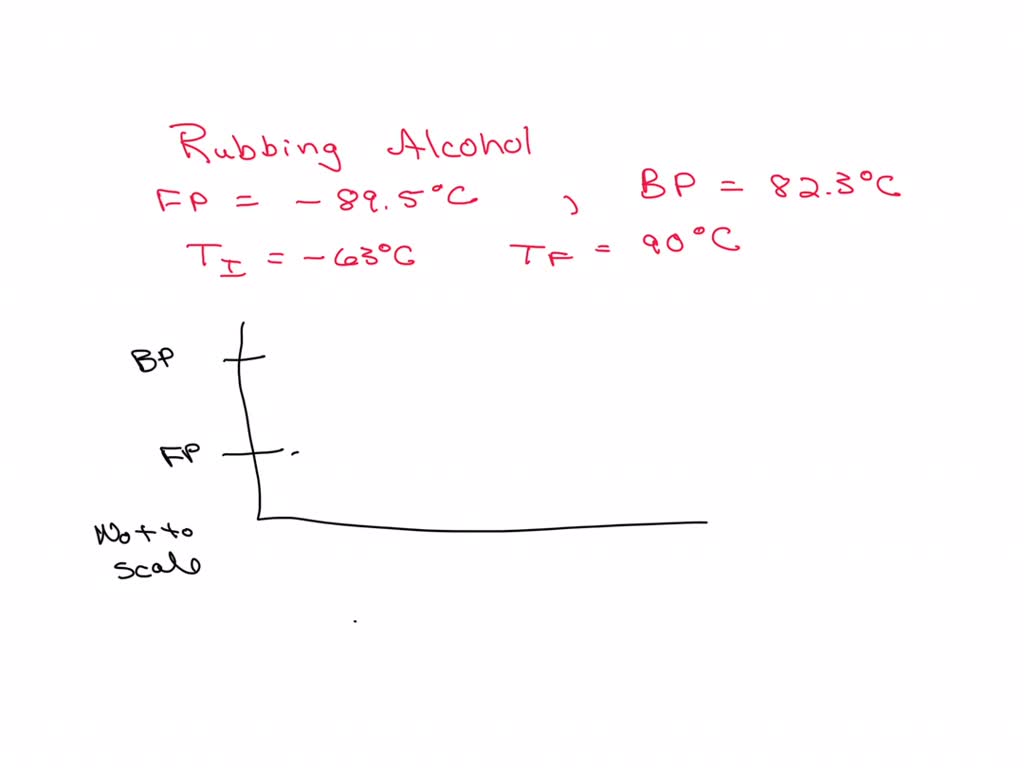 Rubbing Alcohol
FP = -89.5°C , BP = 82.3°C
TI = -63°C TF = 90°C
BP
FP
Not to
scale